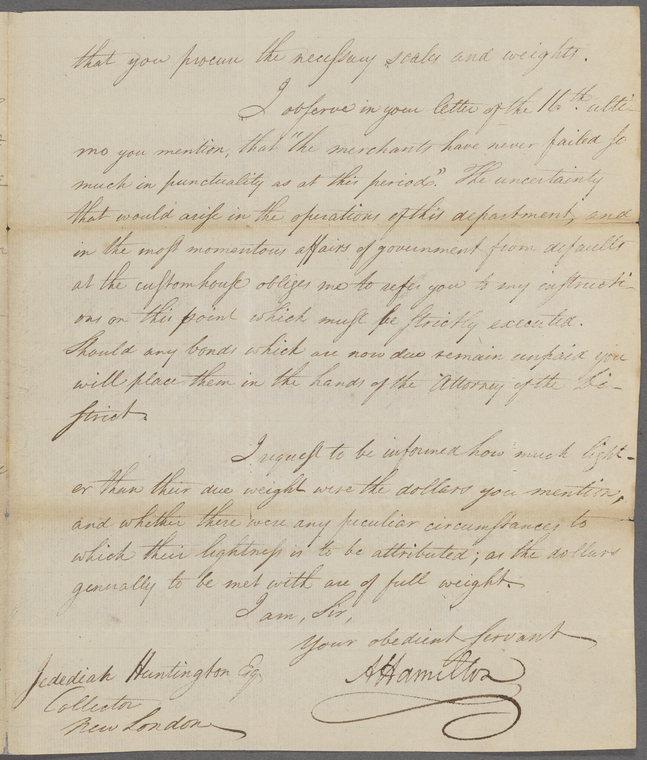 that you procure the necessary scales and weights.
I observe in your letter of the 16th ulti-
mo you mention, that "the merchants have never failed so
much in punctuality as at this period". The uncertainty
that would arise in the operations of this department, and
in the most momentous affairs of government from defaults
at the customhouse obliges me to refer you to my instructi-
ons on this point which must be strictly executed.
Should any bonds which are now due remain unpaid you
will place them in the hands of the Attorney of the Di-
strict.
I request to be informed how much light-
er than their due weight were the dollars you mention,
and whether there were any peculiar circumstances to
which their lightness is to be attributed; as the dollars
generally to be met with are of full weight.
I am, Sir,
Your obedient Servant
AHamilton
Jedediah Huntington Esq
Collector
New London